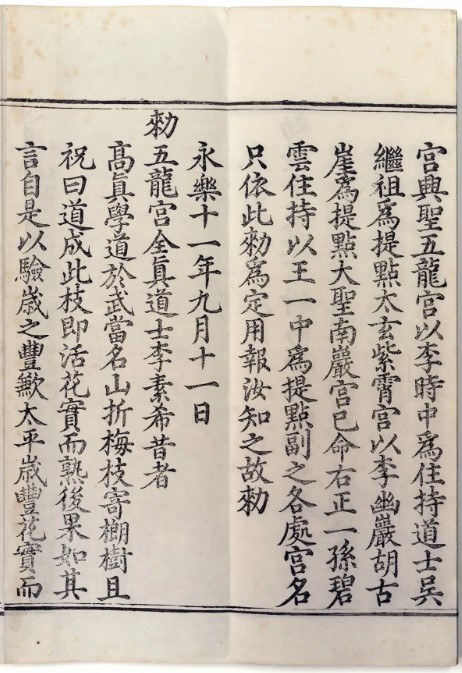 宫興聖五龍宫以李時中爲住持道士吳
繼祖爲提點太玄紫霄宫以李幽巖胡古
崖爲提點大聖南巖宫已命右正一孫碧
雲住持以王一中爲提點副之各處宫名
只依此勑爲定用報汝知之故勑
永樂十一年九月十一日
勑五龍宫全真道士李素希昔者
髙眞學道於武當名山折梅枝寄榔樹且
祝曰道成此枝即活花實而熟後果如其
言自是以驗歳之豐歉太平歳豐花實而